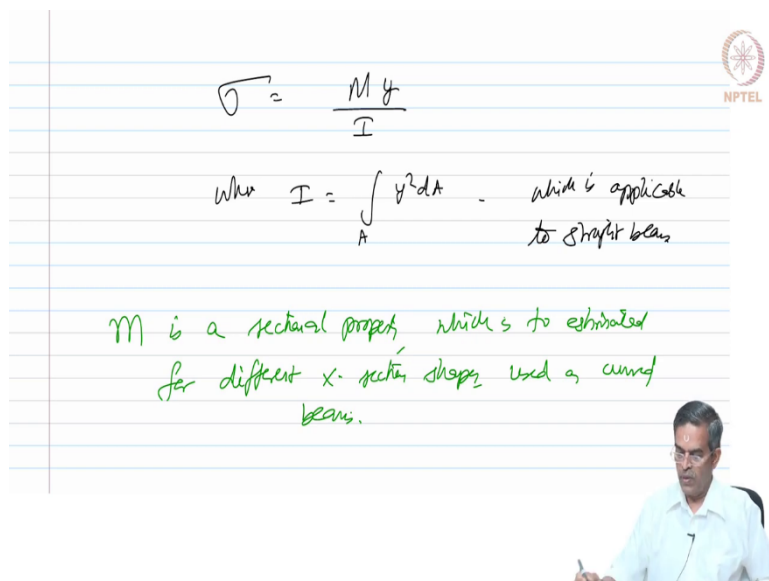 σ = M y / I
NPTEL
where I = ∫_A y² dA - which is applicable
to straight beams
m is a sectional property, which is to estimated
for different x-section shapes used as curved
beams.